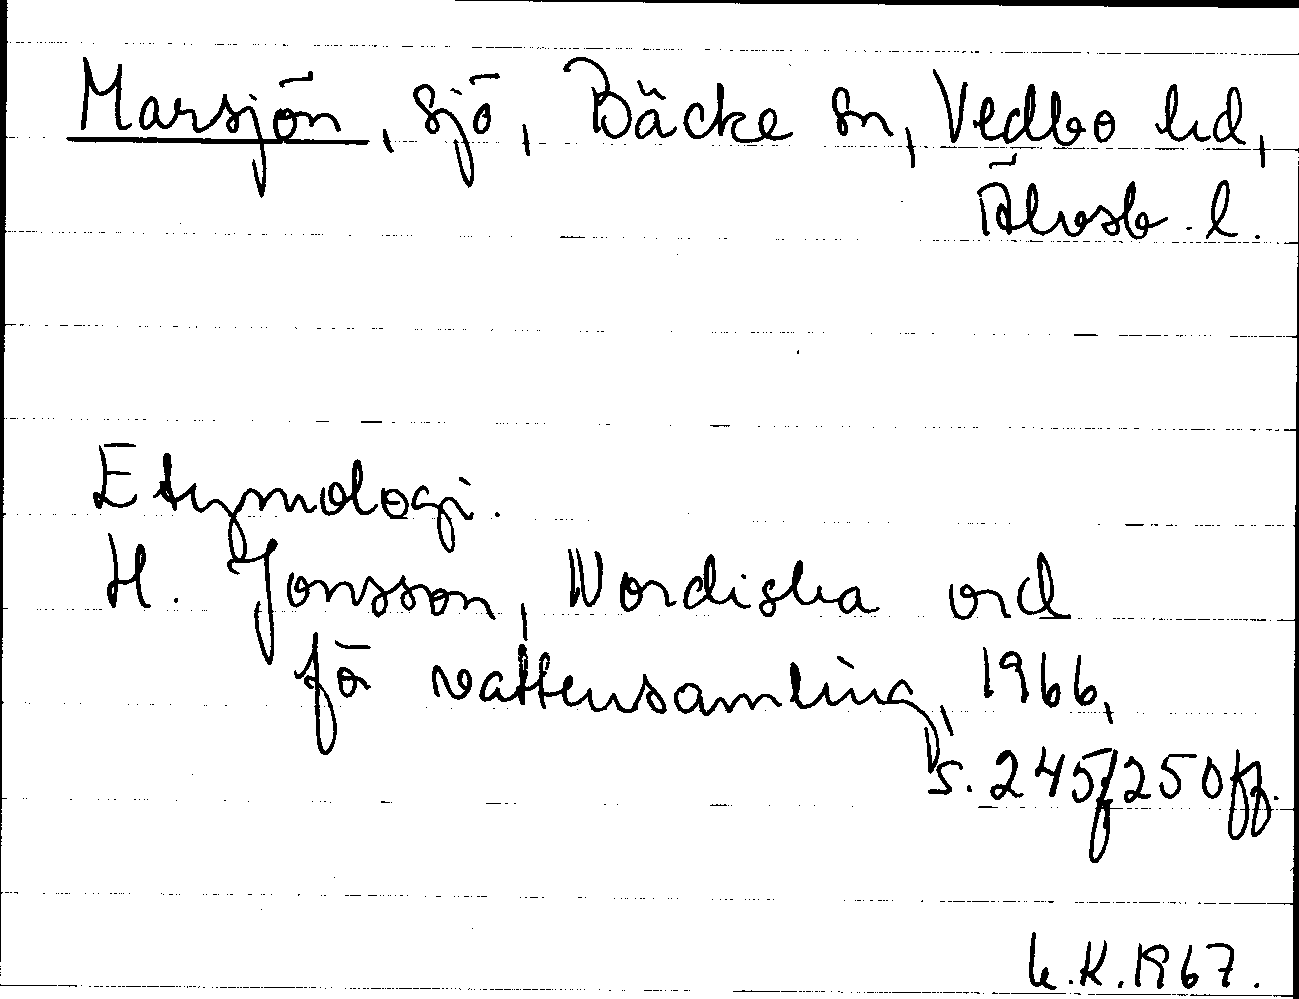 Marsjön, sjö, Bäcke sn, Vedbo hd,
Älvsb. l.
Etymologi.
H. Jonsson, Nordiska ord
för vattensamling, 1966,
s. 245f, 250ff.
K.K. 1967.